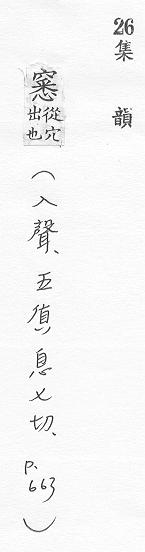 26集韻
窸從穴出也(入聲、五質息七切、p.663)